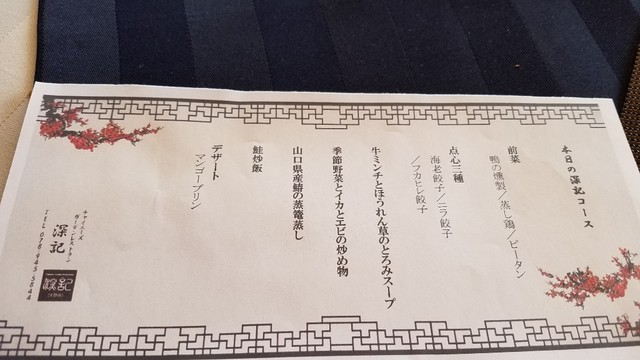 本日の深記コース
前菜
鴨の燻製／蒸し鶏／ピータン
点心三種
海老餃子／ニラ餃子
／フカヒレ餃子
牛ミンチとほうれん草のとろみスープ
季節野菜とイカとエビの炒め物
山口県産鰆の蒸篭蒸し
鮭炒飯
デザート
マンゴープリン
チャイニーズ
ガーデンレストラン
深記
深記